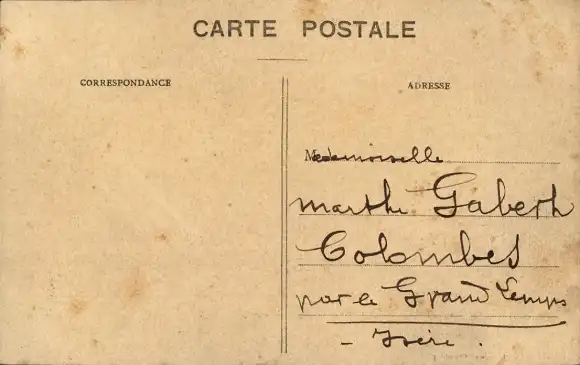 CARTE POSTALE
CORRESPONDANCE
ADRESSE
Mademoiselle
Marthe Gaberh
Colombes
par le Grand Lemps
- Isère .